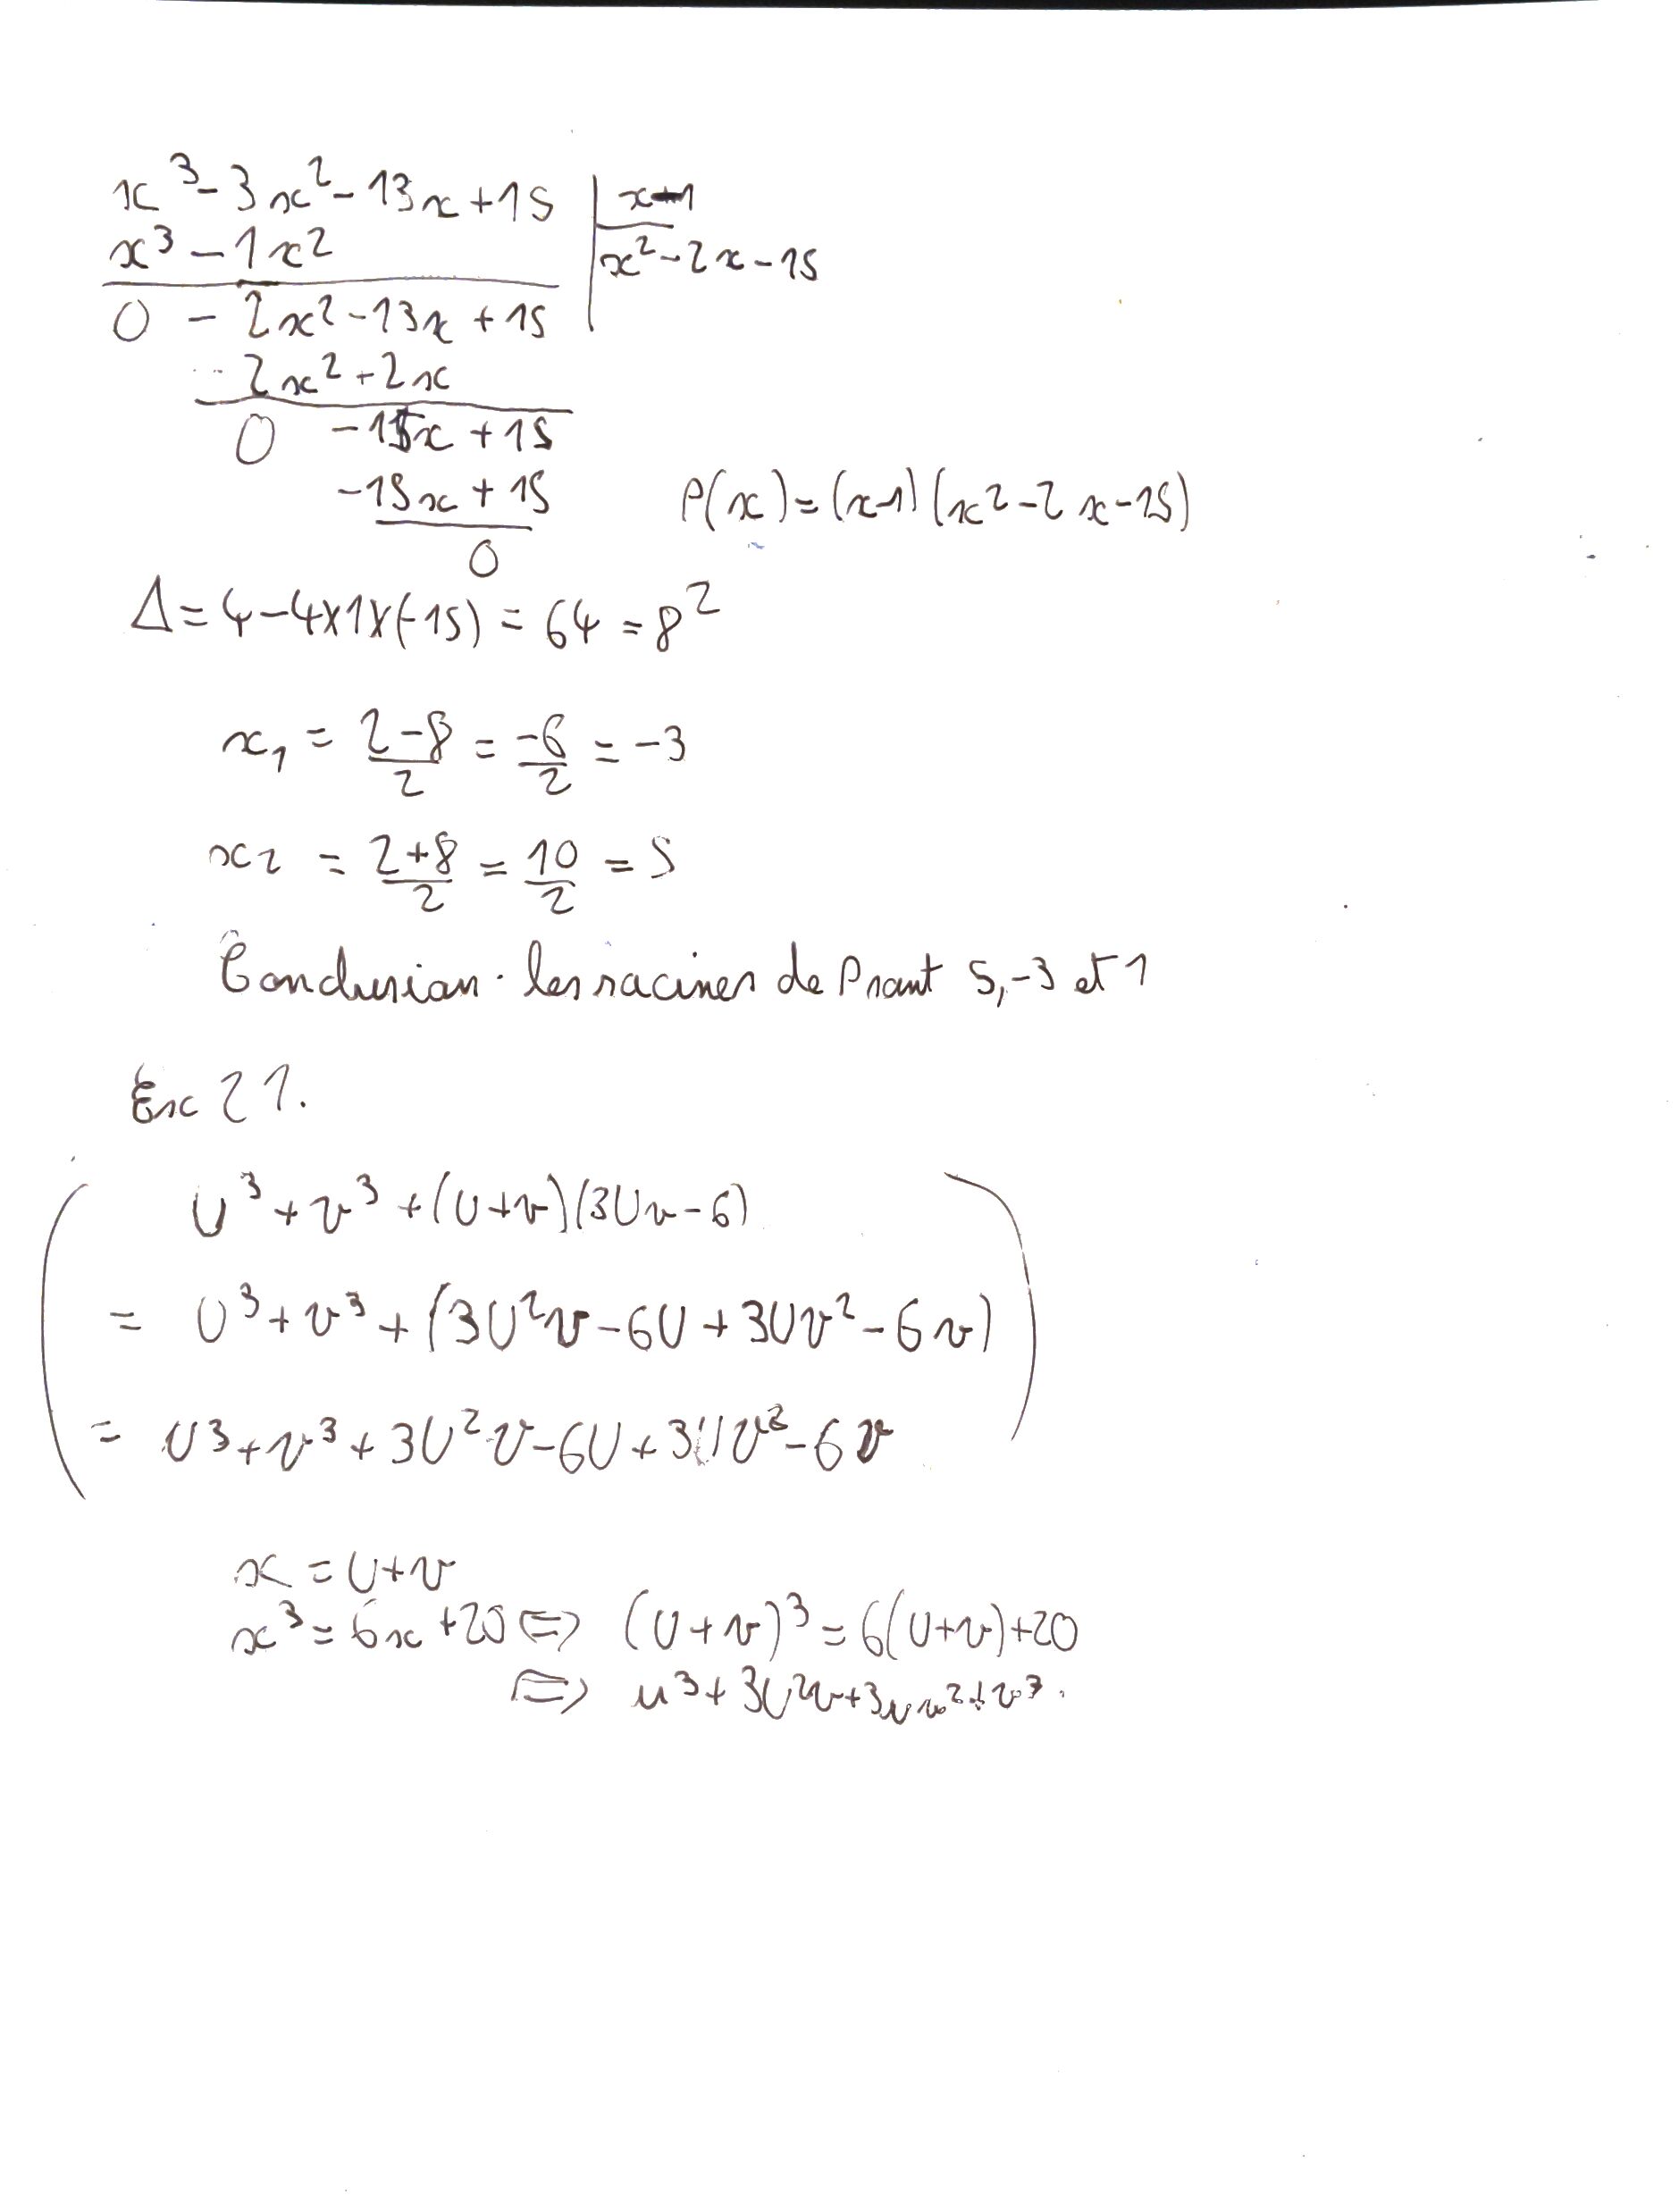 x³ - 3x² - 13x + 15 | x-1
x³ - 1x² | x² - 2x - 15
0 - 2x² - 13x + 15
- 2x² + 2x
0 - 15x + 15
-15x + 15
0
P(x) = (x-1)(x² - 2x - 15)
Δ = 4 - 4×1×(-15) = 64 = 8²
x₁ = (2-8)/2 = -6/2 = -3
x₂ = (2+8)/2 = 10/2 = 5
Conclusion. les racines de P sont 5, -3 et 1
Exc 21.
U³ + v³ + (U+v)(3Uv-6)
= U³ + v³ + (3U²v - 6U + 3Uv² - 6v)
= U³ + v³ + 3U²v - 6U + 3Uv² - 6v
x = U+v
x³ = 6x + 20 ⇔ (U+v)³ = 6(U+v) + 20
⇔ u³ + 3U²v + 3uv² + v³.